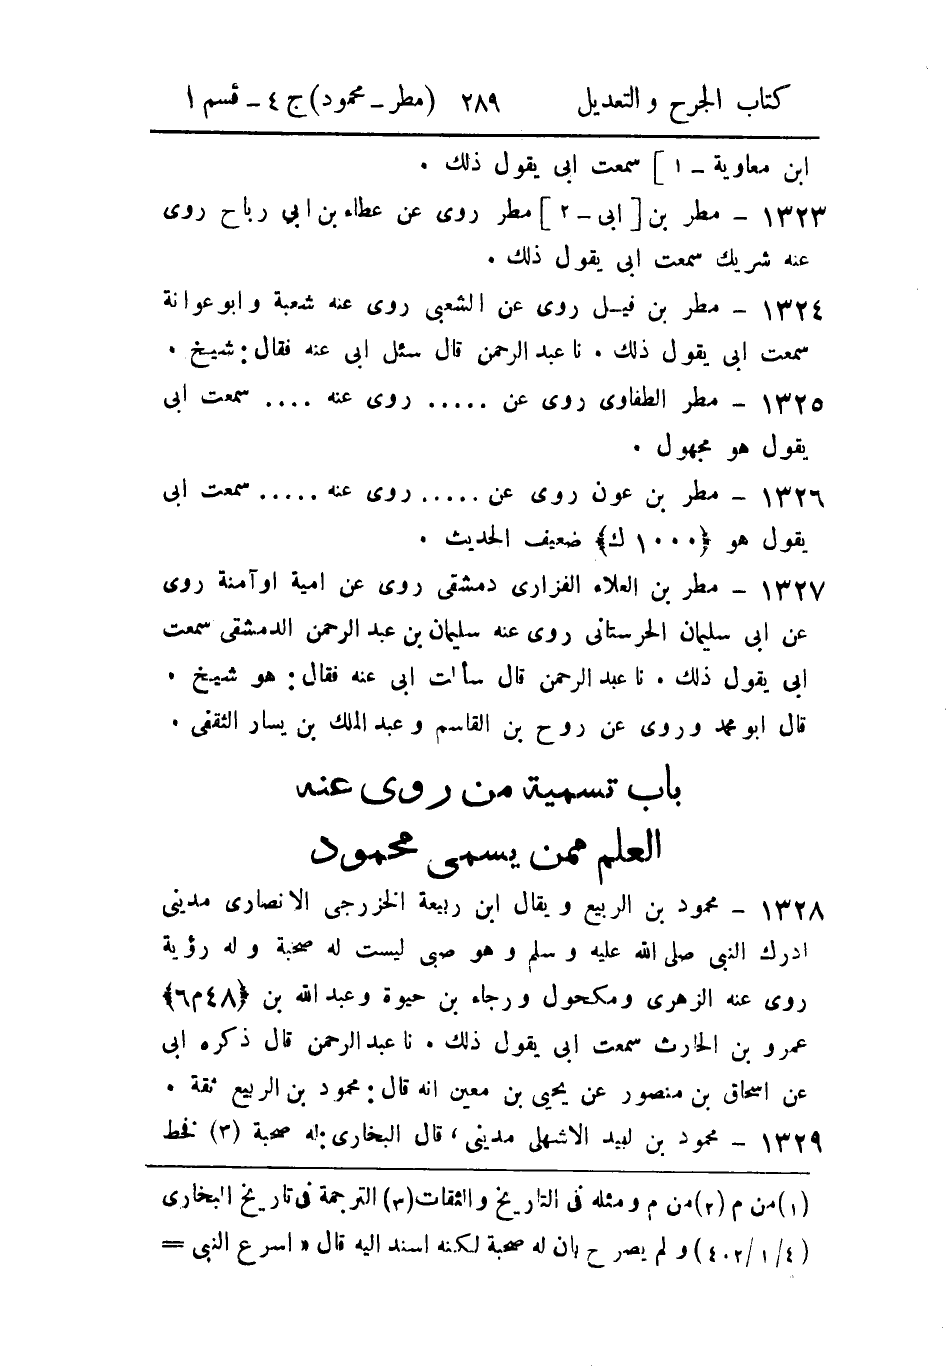 كتاب الجرح والتعديل ٢٨٩ (مطر ـ محمود) ج ٤ ـ قسم ١
ابن معاوية ـ ١ ] سمعت ابى يقول ذلك .
١٣٢٣ - مطر بن [ ابى ـ ٢ ] مطر روى عن عطاء بن ابي رباح روى
عنه شريك سمعت ابى يقول ذلك .
١٣٢٤ - مطر بن فيل روى عن الشعبى روى عنه شعبة وابو عوانة
سمعت ابى يقول ذلك . نا عبد الرحمن قال سئل ابى عنه فقال: شيخ .
١٣٢٥ - مطر الطفاوى روى عن ..... روى عنه .... سمعت ابى
يقول هو مجهول .
١٣٢٦ - مطر بن عون روى عن ..... روى عنه ..... سمعت ابى
يقول هو {١٠٠٠ ك} ضعيف الحديث .
١٣٢٧ - مطر بن العلاء الفزارى دمشقى روى عن امية او آمنة روى
عن ابى سليمان الحرستانى روى عنه سليمان بن عبد الرحمن الدمشقى سمعت
ابى يقول ذلك . نا عبد الرحمن قال سألت ابى عنه فقال: هو شيخ .
قال ابو محمد وروى عن روح بن القاسم وعبد الملك بن يسار الثقفى .
باب تسمية من روى عنه
العلم ممن يسمى محمود
١٣٢٨ - محمود بن الربيع ويقال ابن ربيعة الخزرجى الانصارى مدينى
ادرك النبى صلى الله عليه وسلم وهو صبى ليست له صحبة وله رؤية
روى عنه الزهرى ومكحول ورجاء بن حيوة وعبد الله بن {٤٨م٦}
عمرو بن الحارث سمعت ابى يقول ذلك . نا عبد الرحمن قال ذكره ابى
عن اسحاق بن منصور عن يحيى بن معين انه قال: محمود بن الربيع ثقة .
١٣٢٩ - محمود بن لبيد الاشهلى مدينى، قال البخارى: له صحبة (٣) فخط
(١) من م (٢) من م ومثله فى التاريخ والثقات (٣) الترجمة فى تاريخ البخارى
(٤/ ١/ ٤٠٢) ولم يصرح بان له صحبة لكنه اسند اليه قال « اسرع النبى =